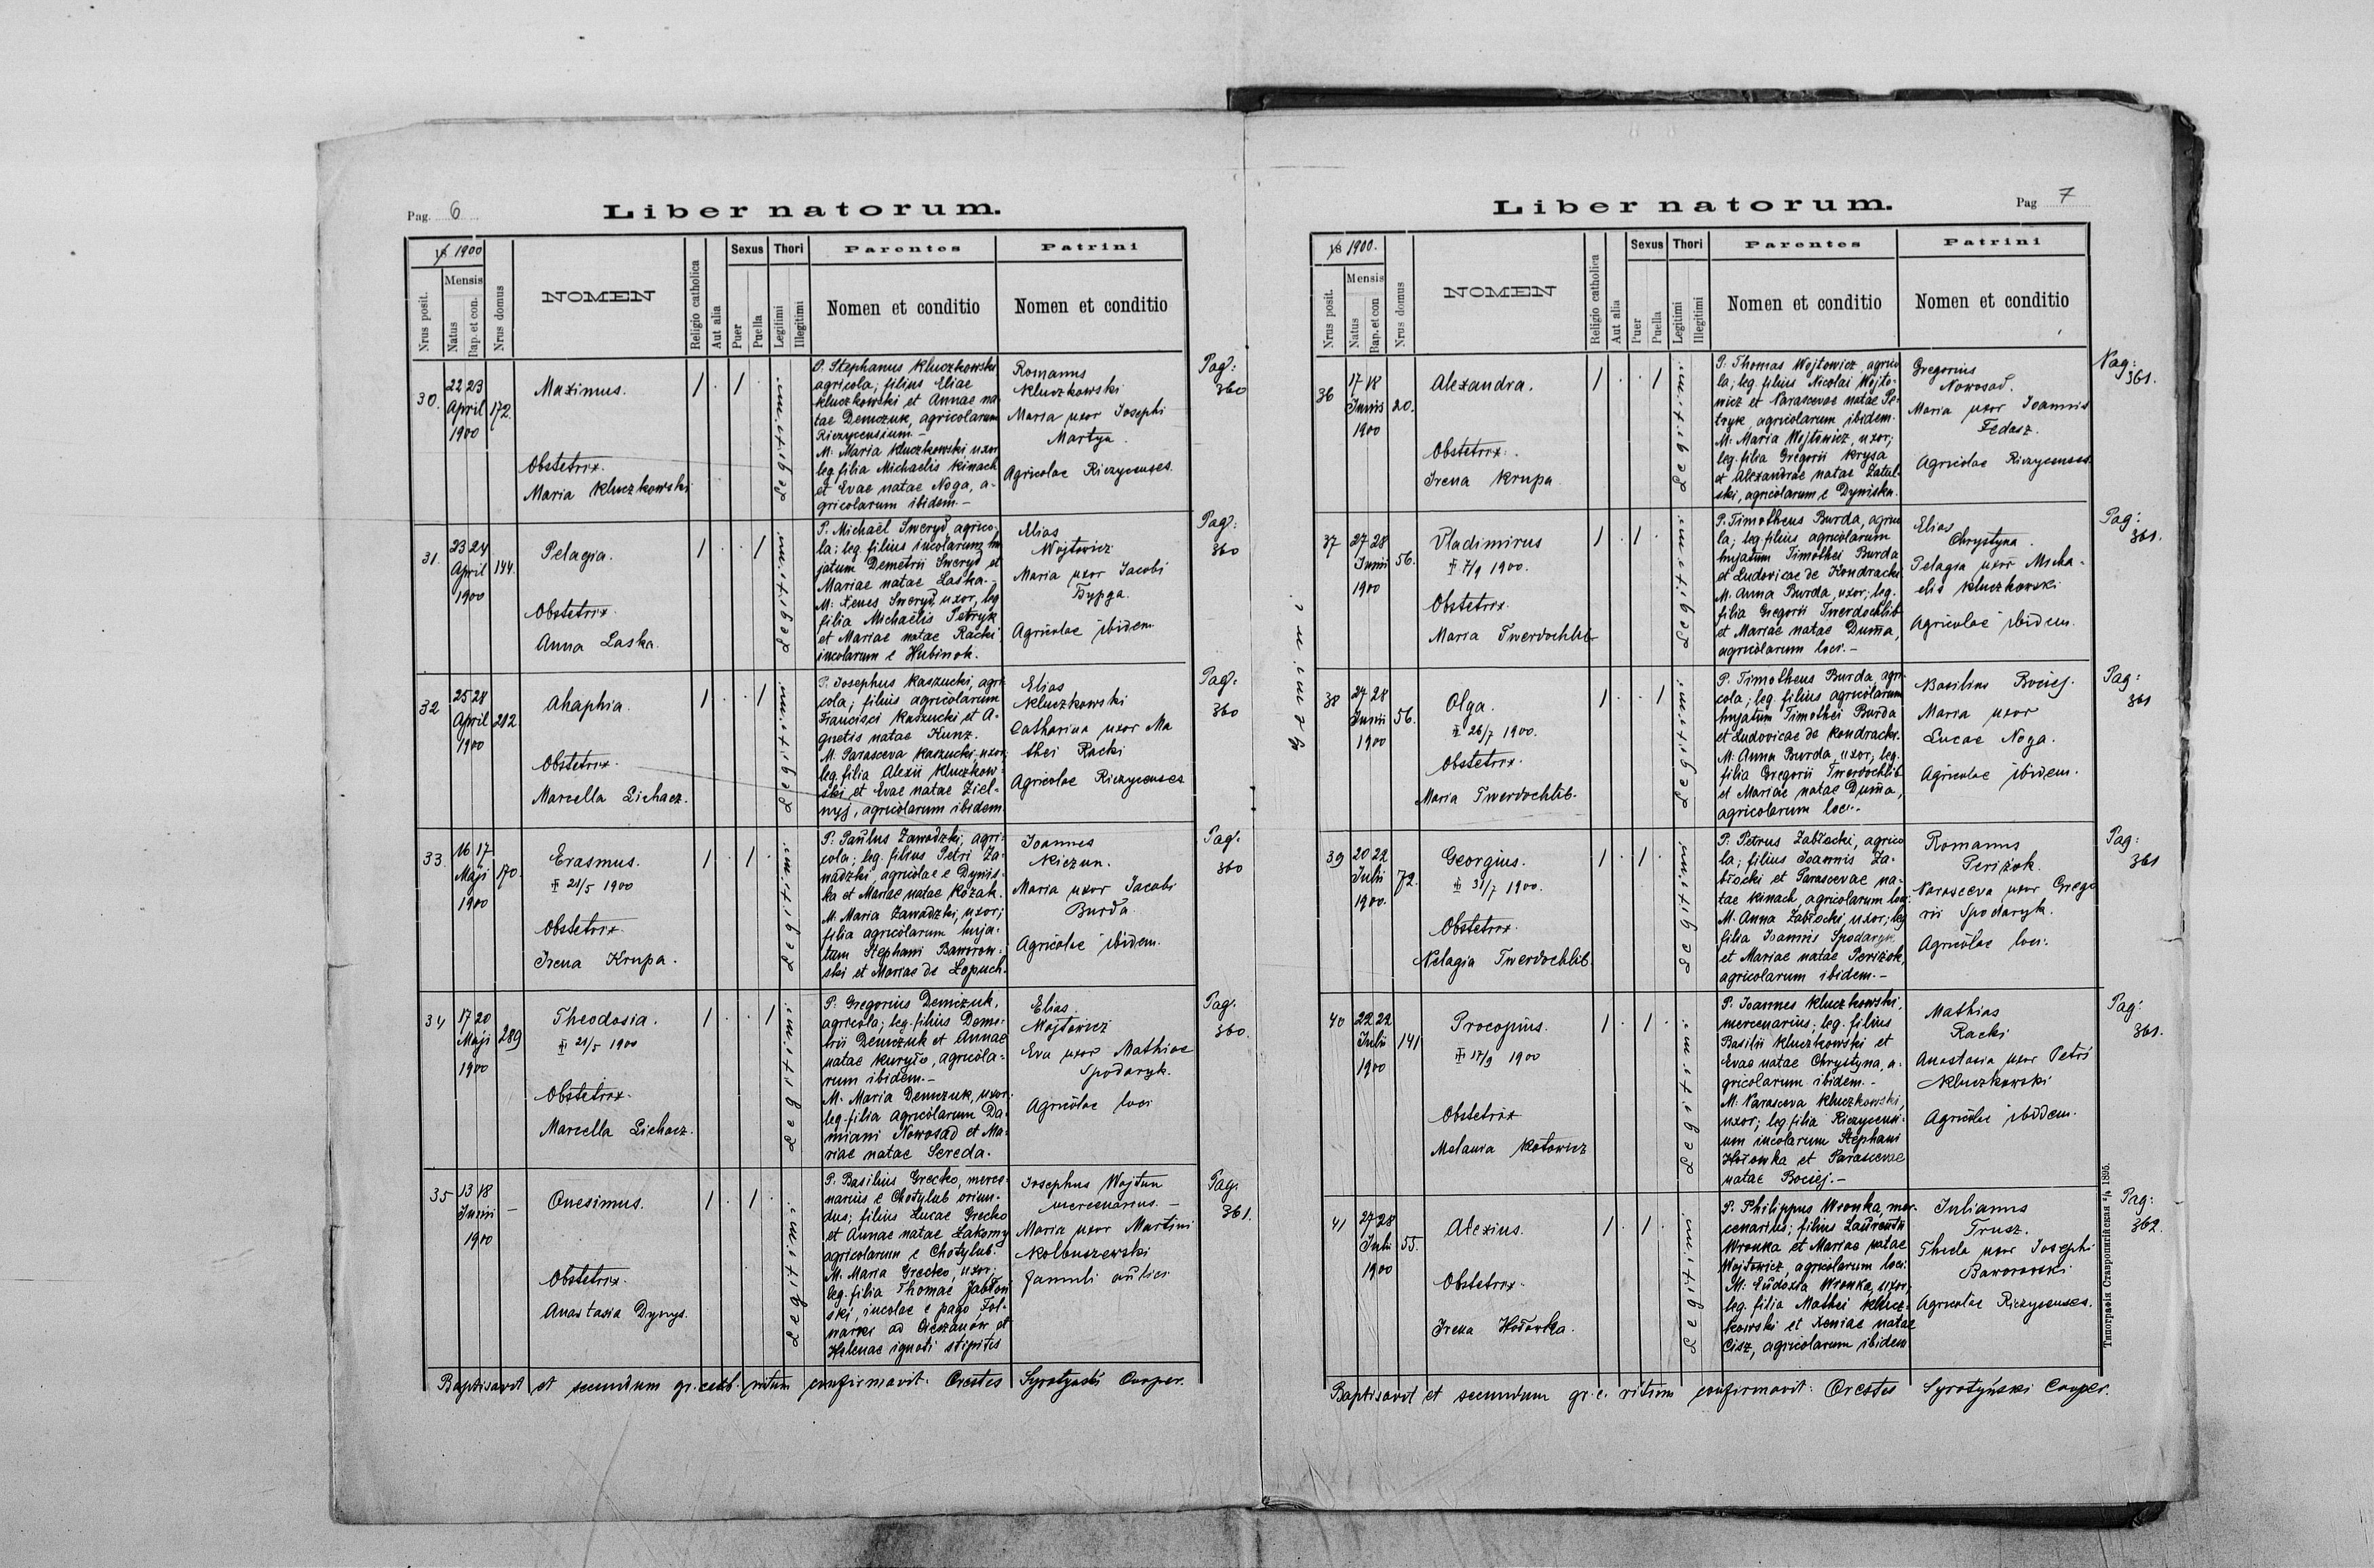 Pag. 6
Liber natorum.
18 1900
Nrus posit.
Mensis
Natus
Bap. et con.
Nrus domus
NOMEN
Religio catholica
Aut alia
Sexus
Puer
Puella
Thori
Legitimi
Illegitimi
Parentes
Nomen et conditio
Patrini
Nomen et conditio
30.
22 23
April
1900
172.
Maximus.
Obstetrix.
Maria Kluczkowski
1 . 1 .
Legitimi.
P. Stephanus Kluczkowski
agricola; filius Eliae
Kluczkowski et Annae na
tae Demczuk, agricolarum
Riczycensium.-
M: Maria Kluczkowski uxor
leg. filia Michaelis Kinach
et Evae natae Noga, a-
gricolarum ibidem.-
Romanus
Kluczkowski
Maria uxor Josephi
Martya.
Agricolae Riczycenses.
Pag:
360
31.
23 24
April
1900
144.
Pelagia.
Obstetrix.
Anna Laska.
1 . . 1
Legitimi.
P. Michaël Sweryd, agrico-
la; leg. filius incolarum hu
jatum Demetrii Sweryd et
Mariae natae Laska.-
M: Xenes Sweryd, uxor, leg
filia Michaëlis Petryk
et Mariae natae Racki
incolarum e Hubinok.
Elias
Wojtowicz
Maria uxor Jacobi
Бурда.
Agricolae ibidem
Pag:
360
32
25 28
April
1900
212.
Ahaphia.
Obstetrix.
Marcella Lichacz.
1 . . 1
Legitimi.
P. Josephus Kaszucki, agri
cola; filius agricolarum
Francisci Kaszucki et A-
gnetis natae Kunz.
M. Parasceva Kaszucki, uxor,
leg. filia Alexii Kluczkow-
ski et Evae natae Ziel-
nyj, agricolarum ibidem
Elias
Kluczkowski
Catharina uxor Ma
thei Racki
Agricolae Riczycenses
Pag:
360
33.
16 17
Maji
1900
170.
Erasmus.
21/5 1900
Obstetrix.
Irena Krupa.
1 . 1 .
Legitimi.
P: Paulus Zawadzki, agri-
cola; leg. filius Petri Za-
wadzki, agricolae e Dynis-
ka et Mariae natae Kozak.
M. Maria Zawadzki, uxor;
filia agricolarum huja-
tum Stephani Baworow-
ski et Mariae de Lopuch.
Joannes
Kiczun.
Maria uxor Jacobi
Burda.
Agricolae ibidem.
Pag:
360
34
17 20
Maji
1900
289
Theodosia.
21/5 1900
Obstetrix.
Marcella Lichacz.
1 . . 1
Legitimi.
P: Gregorius Demczuk,
agricola; leg. filius Deme-
trii Demczuk et Annae
natae Kuryło, agricola-
rum ibidem.-
M. Maria Demczuk, uxor.
leg. filia agricolarum Da-
miani Nowosad et Ma-
riae natae Sereda.
Elias
Wojtowicz
Eva uxor Mathiae
Spodaryk.
Agricolae loci
Pag.
360.
35
13 18
Junii
1900
-
Onesimus.
Obstetrix.
Anastasia Dynys.
1 . 1 .
Legitimi.
P. Basilius Grecko, merce-
narius e Chotylub oriun-
dus; filius Lucae Grecko
et Annae natae Łakomy
agricolarum e Chotylub.
M. Maria Grecko, uxor;
leg. filia Thomae Jabłoń
ski, incolae e pago Fol-
warki ad Cieszanów et
Helenae ignoti stipitis
Josephus Wojtun
mercenarius.-
Maria uxor Martini
Kolbuszewski
famuli aulici
Pag.
361.
Baptisavit et secundum gr. cath. ritum confirmavit: Orestes Syrotyński Cooper.
Pag 7
Liber natorum.
18 1900.
Nrus posit.
Mensis
Natus
Bap. et con
Nrus domus
NOMEN
Religio catholica
Aut alia
Sexus
Puer
Puella
Thori
Legitimi
Illegitimi
Parentes
Nomen et conditio
Patrini
Nomen et conditio
36
17 18
Junii
1900
20.
Alexandra.
Obstetrix.
Irena Krupa
1 . . 1
Legitimi.
P: Thomas Wojtowicz, agrico
la; leg. filius Nicolai Wojto-
wicz et Parascevae natae Pe-
tryk, agricolarum ibidem.
M: Maria Wojtowicz, uxor;
leg. filia Gregorii Krysa
et Alexandrae natae Zatul-
ski, agricolarum e Dyniska.
Gregorius
Nowosad.
Maria uxor Joannis
Fedasz.
Agricolae Riczycenses.
Pag:
361.
37
27 28
Junii
1900
56.
Vladimirus
7/9 1900.
Obstetrix.
Maria Twerdochlib
1 . 1 .
Legitimi.
Gemini.
P. Timotheus Burda, agrico
la; leg. filius agricolarum
hujatum Timothei Burda
et Ludovicae de Kondracki.
M. Anna Burda, uxor; leg.
filia Gregorii Twerdochlib
et Mariae natae Duma,
agricolarum loci.-
Elias
Chrystyna.
Pelagia uxor Micha-
elis Kluczkowski
Agricolae ibidem.
Pag:
361.
38
27 28
Junii
1900
56.
Olga.
26/7 1900.
Obstetrix.
Maria Twerdochlib.
1 . . 1
Legitimi.
P. Timotheus Burda, agri-
cola; leg. filius agricolarum
hujatum Timothei Burda
et Ludovicae de Kondracki.
M: Anna Burda, uxor; leg.
filia Gregorii Twerdochlib
et Mariae natae Duma,
agricolarum loci.-
Basilius Bociej.
Maria uxor
Lucae Noga.
Agricolae ibidem.
Pag:
361
39
20 22
Julii
1900.
72.
Georgius.
31/7 1900.
Obstetrix.
Pelagia Twerdochlib.
1 . 1 .
Legitimi.
P: Petrus Zabłocki, agrico
la; filius Joannis Za-
błocki et Parascevae na-
tae Kinach, agricolarum loci.
M. Anna Zabłocki, uxor; leg
filia Joannis Spodaryk
et Mariae natae Periżok,
agricolarum ibidem.-
Romanus
Periżok.
Parasceva uxor Grego
rii Spodaryk.
Agricolae loci.
Pag:
361
40
22 22
Julii
1900
141
Procopius.
17/9 1900
Obstetrix
Melania Kotowicz
1 . 1 .
Legitimi.
P: Joannes Kluczkowski,
mercenarius; leg. filius
Basilii Kluczkowski et
Evae natae Chrystyna, a-
gricolarum ibidem.-
M: Parasceva Kluczkowski,
uxor; leg filia Riczycensi-
um incolarum Stephani
Hołowka et Parascevae
natae Bociej.-
Mathias
Racki
Anastasia uxor Petri
Kluczkowski
Agricolae ibidem.
Pag:
361.
41
27 28
Julii
1900
55.
Alexius.
Obstetrix.
Irena Hołowka.
1 . 1 .
Legitimi.
P. Philippus Wronka, mer-
cenarius; filius Laurentii
Wronka et Mariae natae
Wojtowicz, agricolarum loci.
M: Eudoxia Wronka, uxor,
leg. filia Mathei Klucz-
kowski et Xeniae natae
Cisz, agricolarum ibidem
Julianus
Trusz.
Thecla uxor Josephi
Baworowski
Agricolae Riczycenses.
Pag:
362.
Baptisavit et secundum gr. c. ritum confirmavit: Orestes Syrotyński Cooper.
Типографія Ставропигійская 1895.